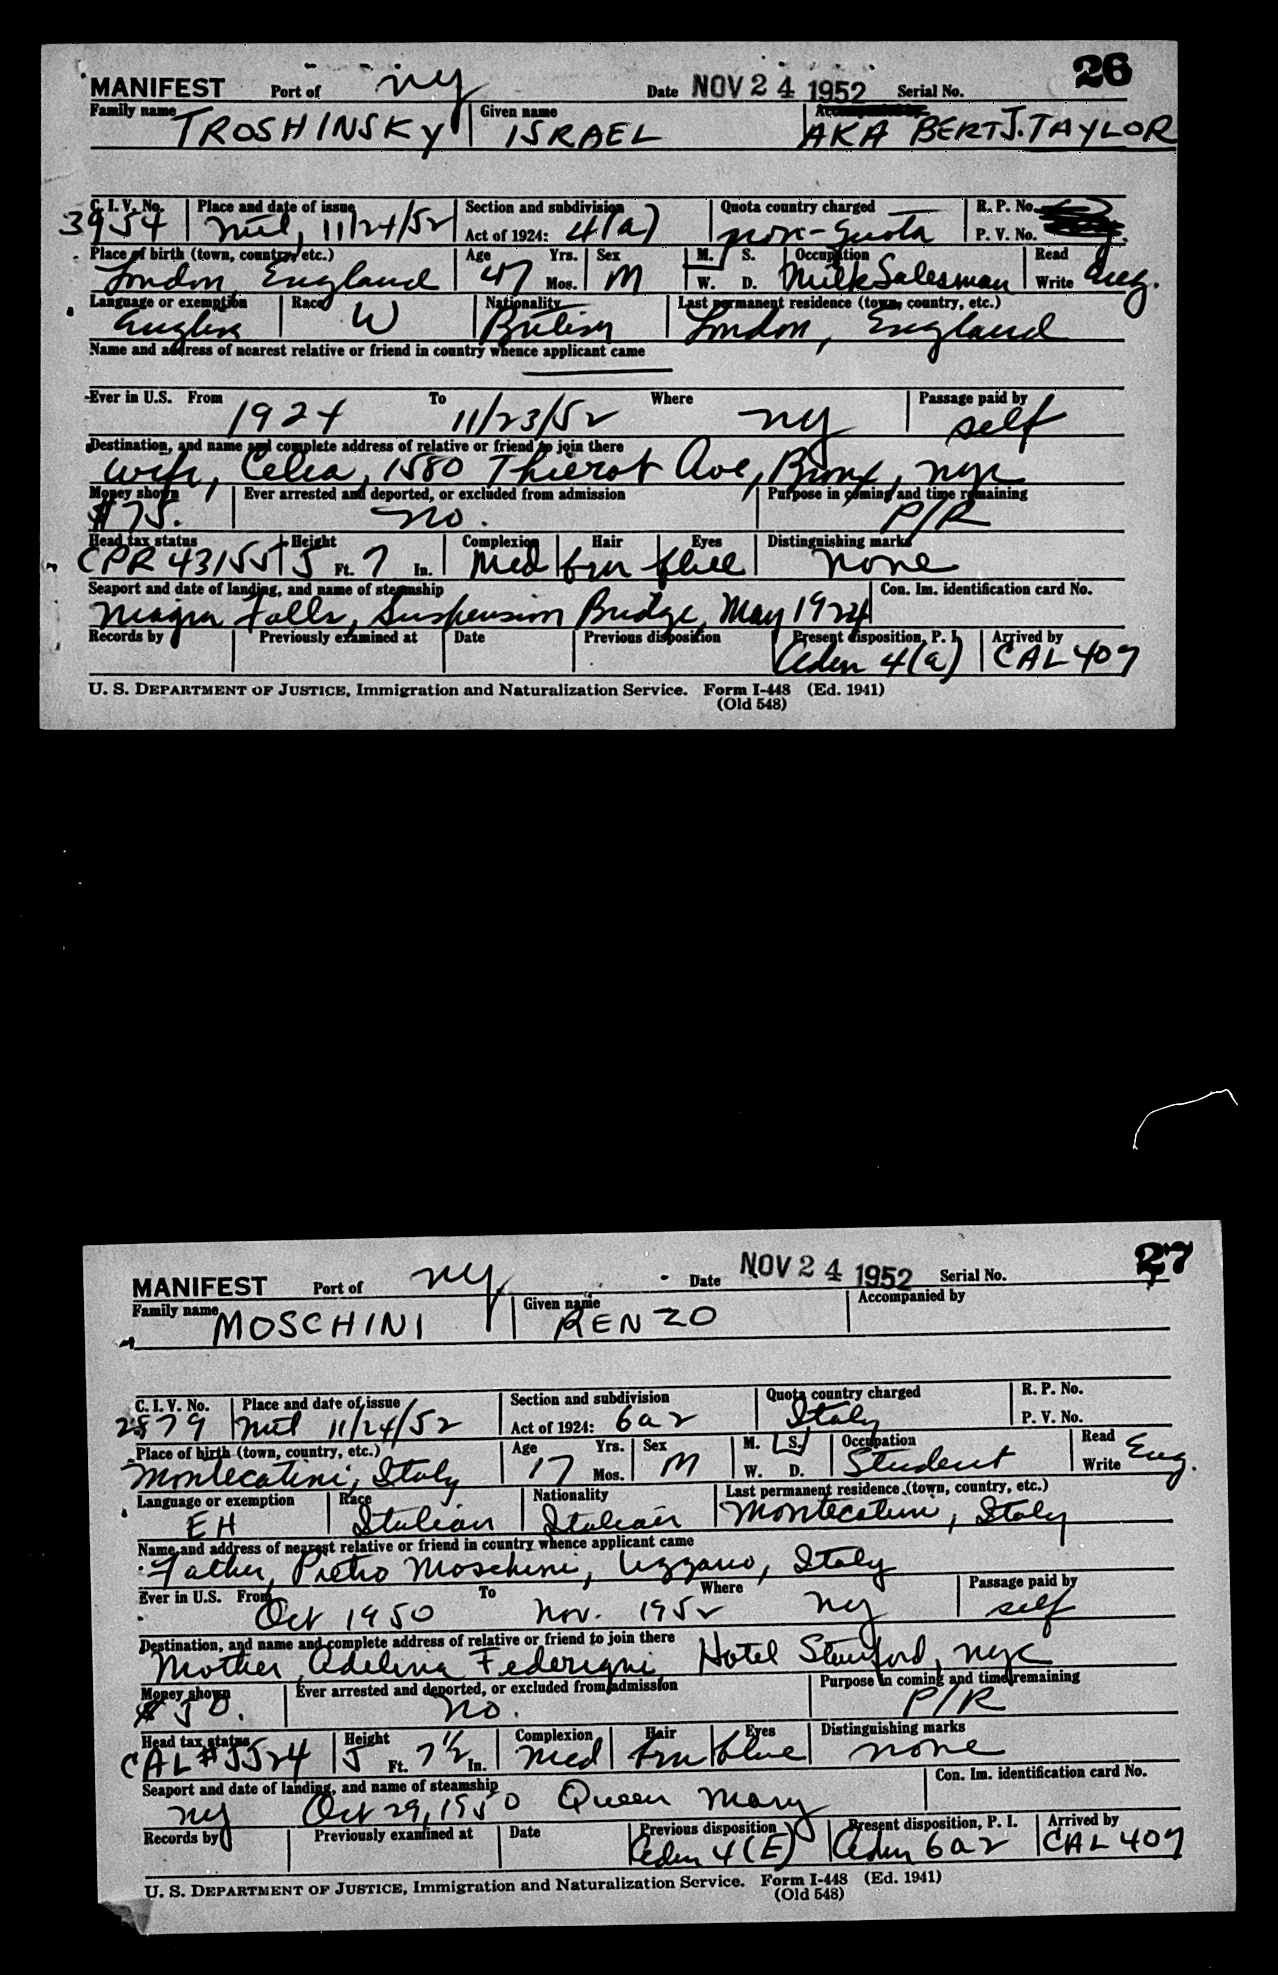 26
MANIFEST Port of NY Date NOV 24 1952 Serial No.
Family name TROSHINSKY Given name ISRAEL AKA BERT J. TAYLOR
C. I. V. No. Place and date of issue Section and subdivision Quota country charged R. P. No.
3954 Mtl, 11/24/52 Act of 1924: 4(a) non-quota P. V. No.
Place of birth (town, country, etc.) Age Yrs. Sex M. S. Occupation Read
London, England 47 Mos. M W. D. Milk Salesman Write Eng.
Language or exemption Race Nationality Last permanent residence (town, country, etc.)
English W British London, England
Name and address of nearest relative or friend in country whence applicant came
Ever in U.S. From To Where Passage paid by
1924 11/23/52 NY self
Destination, and name and complete address of relative or friend to join there
wife, Celia, 1580 Thierot Ave, Bronx, NYC
Money shown Ever arrested and deported, or excluded from admission Purpose in coming and time remaining
$75. no. P/R
Head tax status Height Complexion Hair Eyes Distinguishing marks
CPR 43155 5 Ft. 7 In. Med brn blue none
Seaport and date of landing, and name of steamship Con. Im. identification card No.
Niagra Falls, Suspension Bridge, May 1924
Records by Previously examined at Date Previous disposition Present disposition, P. I. Arrived by
Adm 4(a) CAL 407
U. S. DEPARTMENT OF JUSTICE, Immigration and Naturalization Service. Form I-448 (Ed. 1941)
(Old 548)
27
MANIFEST Port of NY Date NOV 24 1952 Serial No.
Family name MOSCHINI Given name RENZO Accompanied by
C. I. V. No. Place and date of issue Section and subdivision Quota country charged R. P. No.
2879 Mtl 11/24/52 Act of 1924: 6a2 Italy P. V. No.
Place of birth (town, country, etc.) Age Yrs. Sex M. S. Occupation Read
Montecatini, Italy 17 Mos. M W. D. Student Write Eng.
Language or exemption Race Nationality Last permanent residence (town, country, etc.)
EH Italian Italian Montecatini, Italy
Name and address of nearest relative or friend in country whence applicant came
Father, Pietro Moschini, Uzzano, Italy
Ever in U.S. From To Where Passage paid by
Oct 1950 Nov. 1952 NY self
Destination, and name and complete address of relative or friend to join there
Mother, Adelina Federigni, Hotel Stanford, NYC
Money shown Ever arrested and deported, or excluded from admission Purpose in coming and time remaining
$50. no. P/R
Head tax status Height Complexion Hair Eyes Distinguishing marks
CAL #5524 5 Ft. 7 1/2 In. med brn blue none
Seaport and date of landing, and name of steamship Con. Im. identification card No.
NY Oct 29, 1950 Queen Mary
Records by Previously examined at Date Previous disposition Present disposition, P. I. Arrived by
Adm 4(E) Adm 6a2 CAL 407
U. S. DEPARTMENT OF JUSTICE, Immigration and Naturalization Service. Form I-448 (Ed. 1941)
(Old 548)